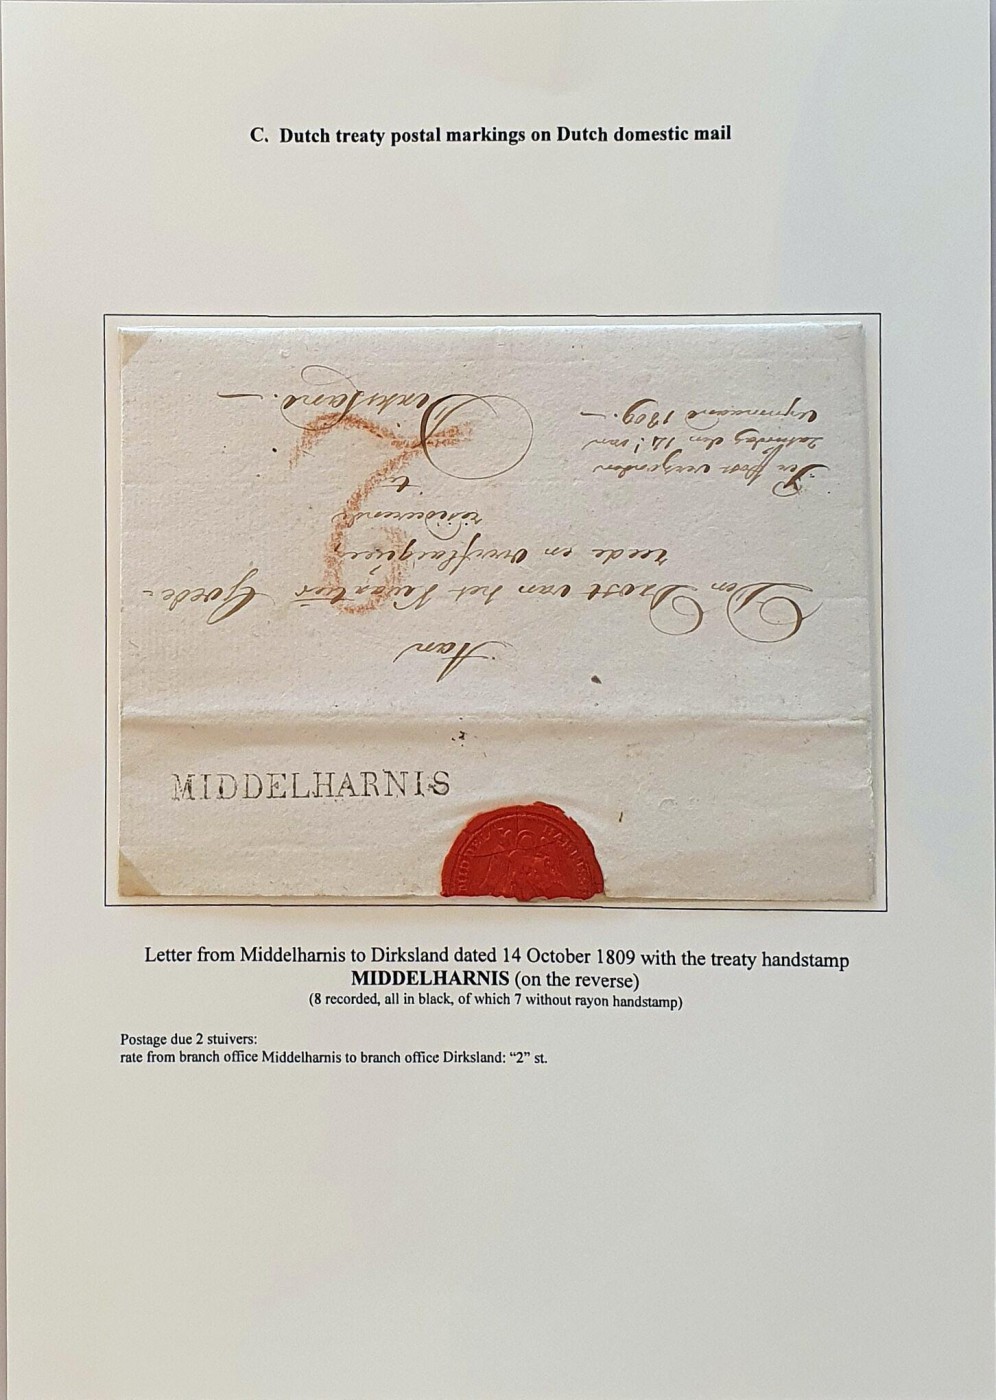 C. Dutch treaty postal markings on Dutch domestic mail
Aan
Den Drost van het Kwartier Goede-
reede en Overflacquee,
resideerende
te
Dirksland.—
Per Post verzonden
Zaturdag den 14.e van
Wijnmaand 1809.—
2
MIDDELHARNIS
MIDDEL HARNIS
Letter from Middelharnis to Dirksland dated 14 October 1809 with the treaty handstamp
MIDDELHARNIS (on the reverse)
(8 recorded, all in black, of which 7 without rayon handstamp)
Postage due 2 stuivers:
rate from branch office Middelharnis to branch office Dirksland: “2” st.